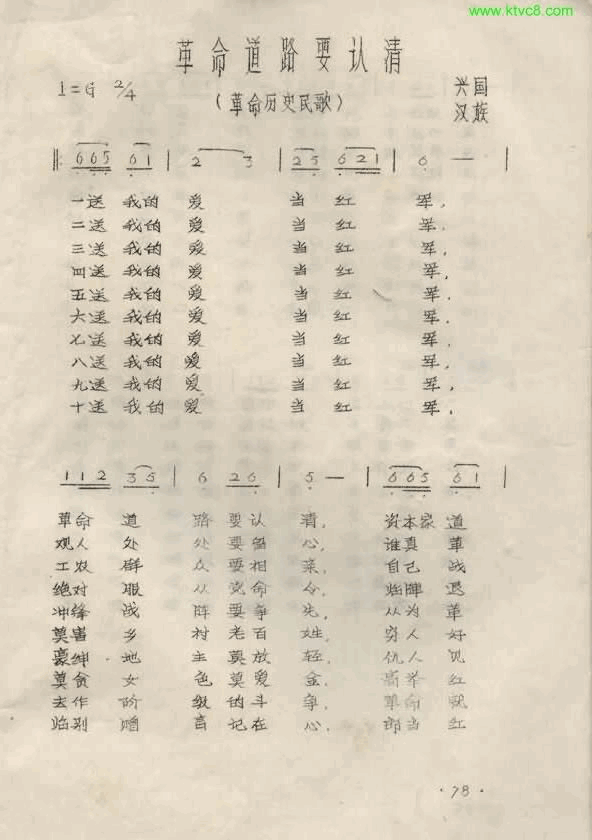 www.ktvc8.com
革命道路要认清
1=G 2/4
(革命历史民歌)
兴国
汉族
‖ 6 6 5 6 1 | 2 3 | 2 5 6 2 1 | 6 — |
一送 我的 爱 当 红 军,
二送 我的 爱 当 红 军,
三送 我的 爱 当 红 军,
四送 我的 爱 当 红 军,
五送 我的 爱 当 红 军,
六送 我的 爱 当 红 军,
七送 我的 爱 当 红 军,
八送 我的 爱 当 红 军,
九送 我的 爱 当 红 军,
十送 我的 爱 当 红 军,
1 1 2 3 5 | 6 2 6 | 5 — | 6 6 5 6 1 |
革命 道 路 要认 清, 资本家 道
观人 处 处 要留 心, 谁真 革
工农 群 众 要相 亲, 自己 战
绝对 服 从 党命 令, 临阵 退
冲锋 战 阵 要争 先, 从为 革
莫害 乡 村 老百 姓, 穷人 好
豪绅 地 主 莫放 轻, 仇人 见
莫贪 女 色 莫爱 金, 高举 红
去作 阶 级 的斗 争, 革命
临别 赠 言 记在 心, 郎当 红
·78·